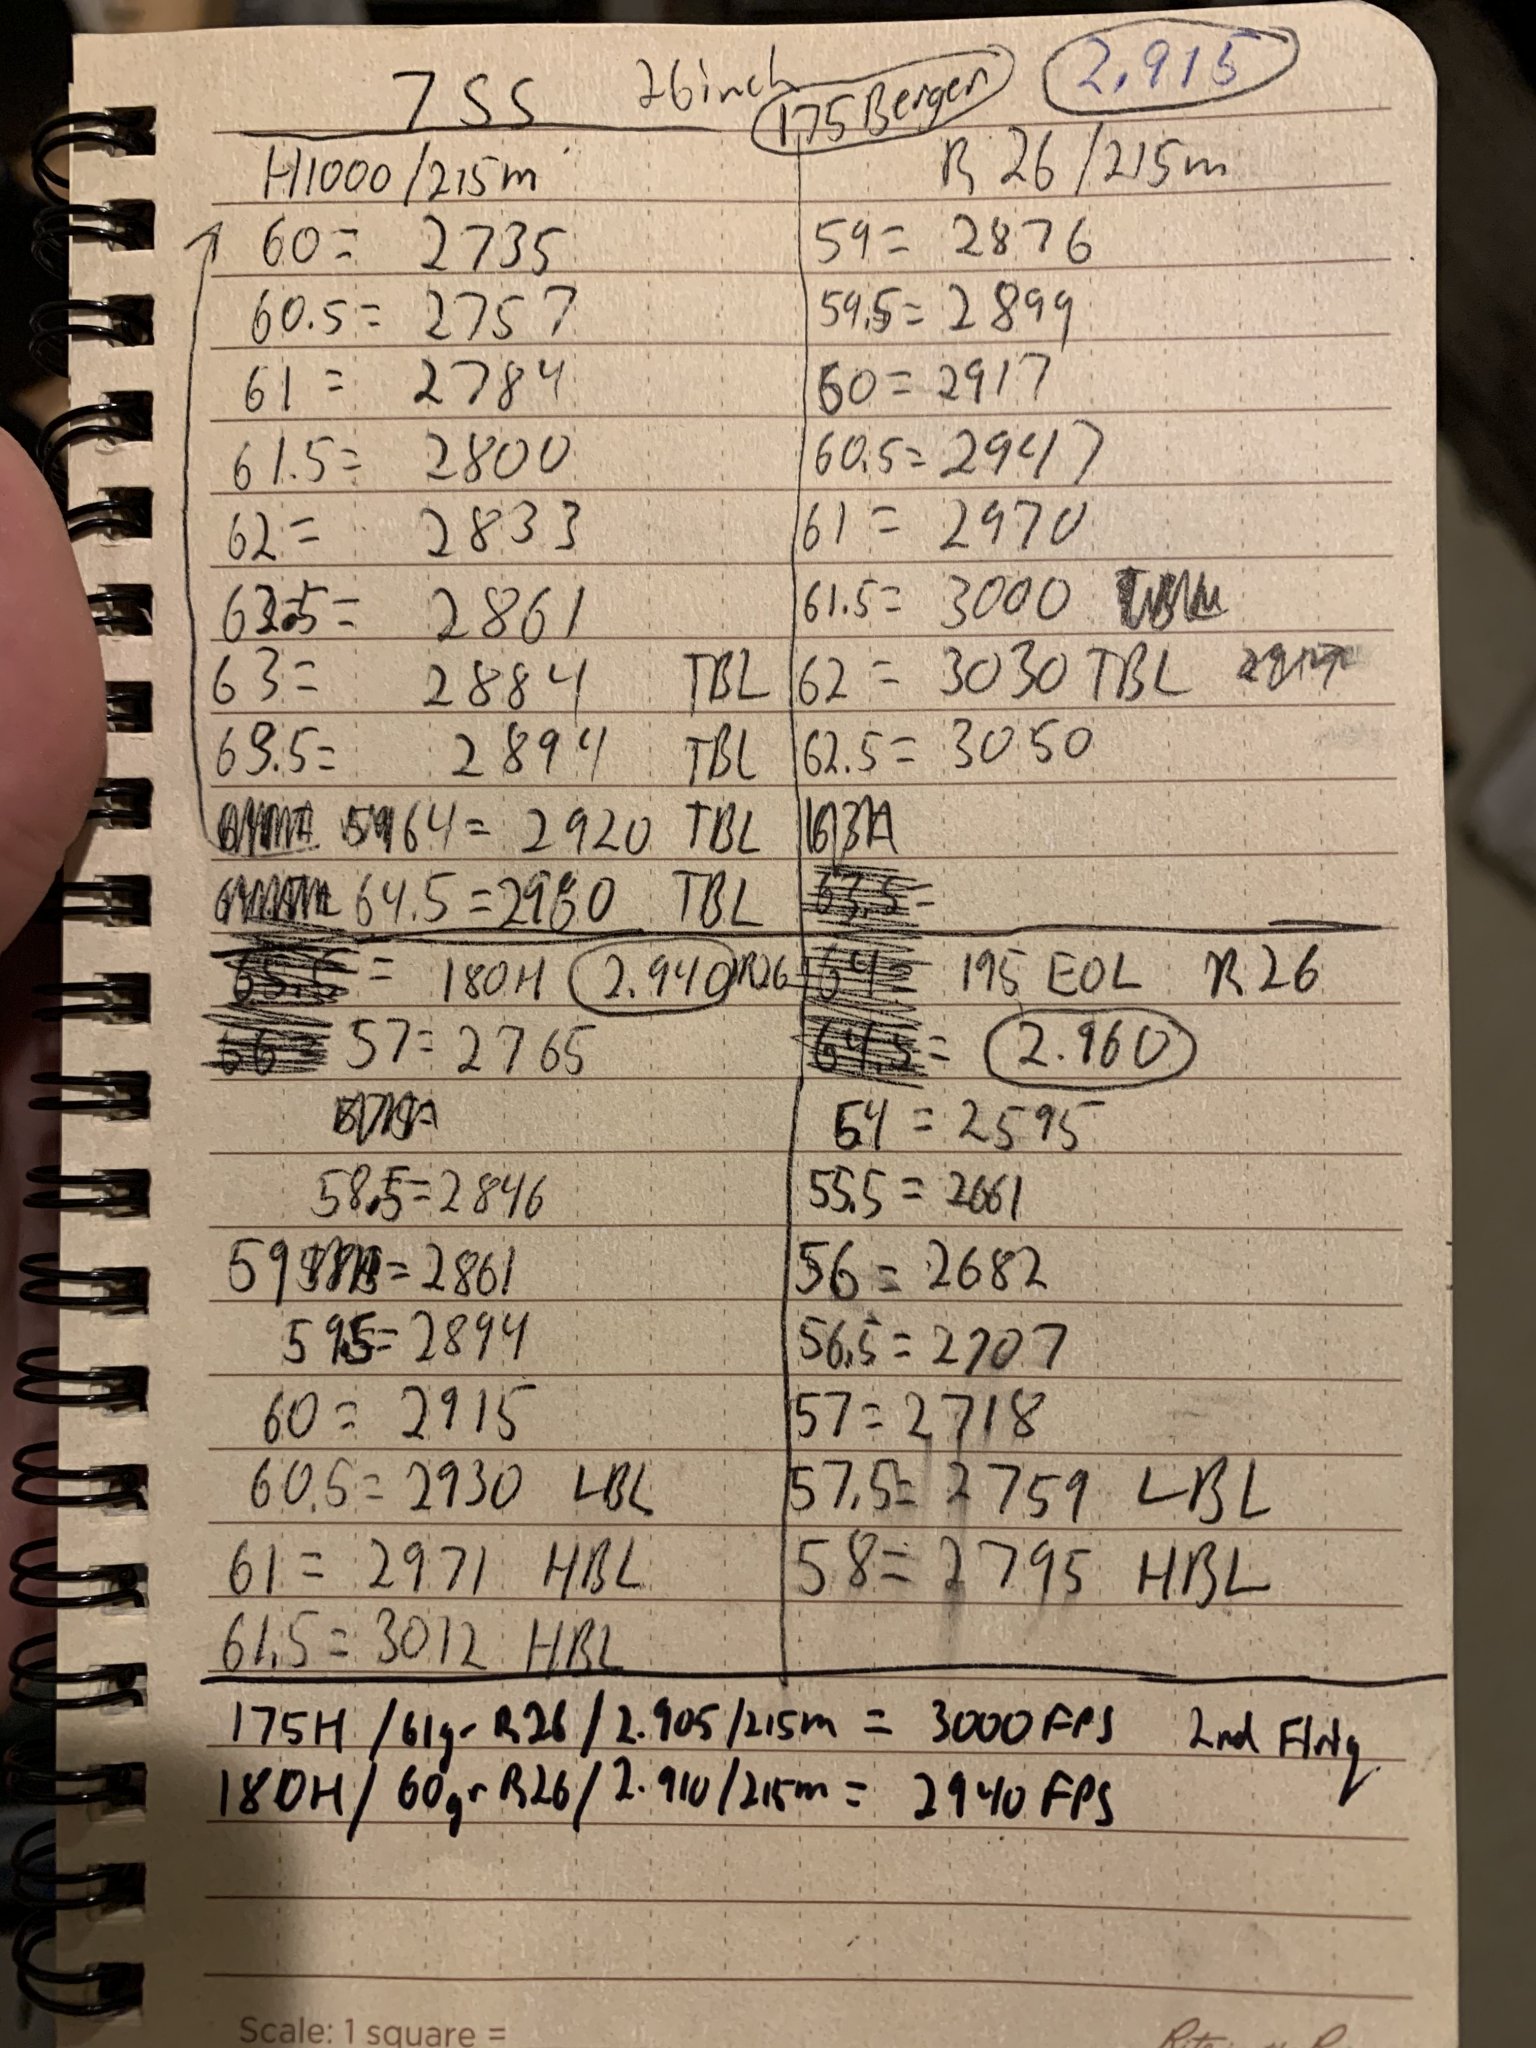 7 SS 26 inch 175 Berger 2.915
H1000/215m R26/215m
60= 2735 59= 2876
60.5= 2757 59.5= 2899
61= 2784 60= 2917
61.5= 2800 60.5= 2947
62= 2833 61= 2970
62.5= 2861 61.5= 3000
63= 2884 TBL 62= 3030 TBL
63.5= 2894 TBL 62.5= 3050
64= 2920 TBL
64.5= TBL 63.5=
= 180H 2.940 R26 64= 195 EOL R26
57= 2765 64.5= 2.960
54= 2595
58.5= 2846 55.5= 2661
59 = 2861 56= 2682
59.5= 2894 56.5= 2707
60= 2915 57= 2718
60.5= 2930 LBL 57.5= 2759 LBL
61= 2971 HBL 58= 2795 HBL
61.5= 3012 HBL
175H/61gr R26/2.905/215m = 3000 FPS 2nd
180H/60gr R26/2.910/215m = 2940 FPS
Scale: 1 square =